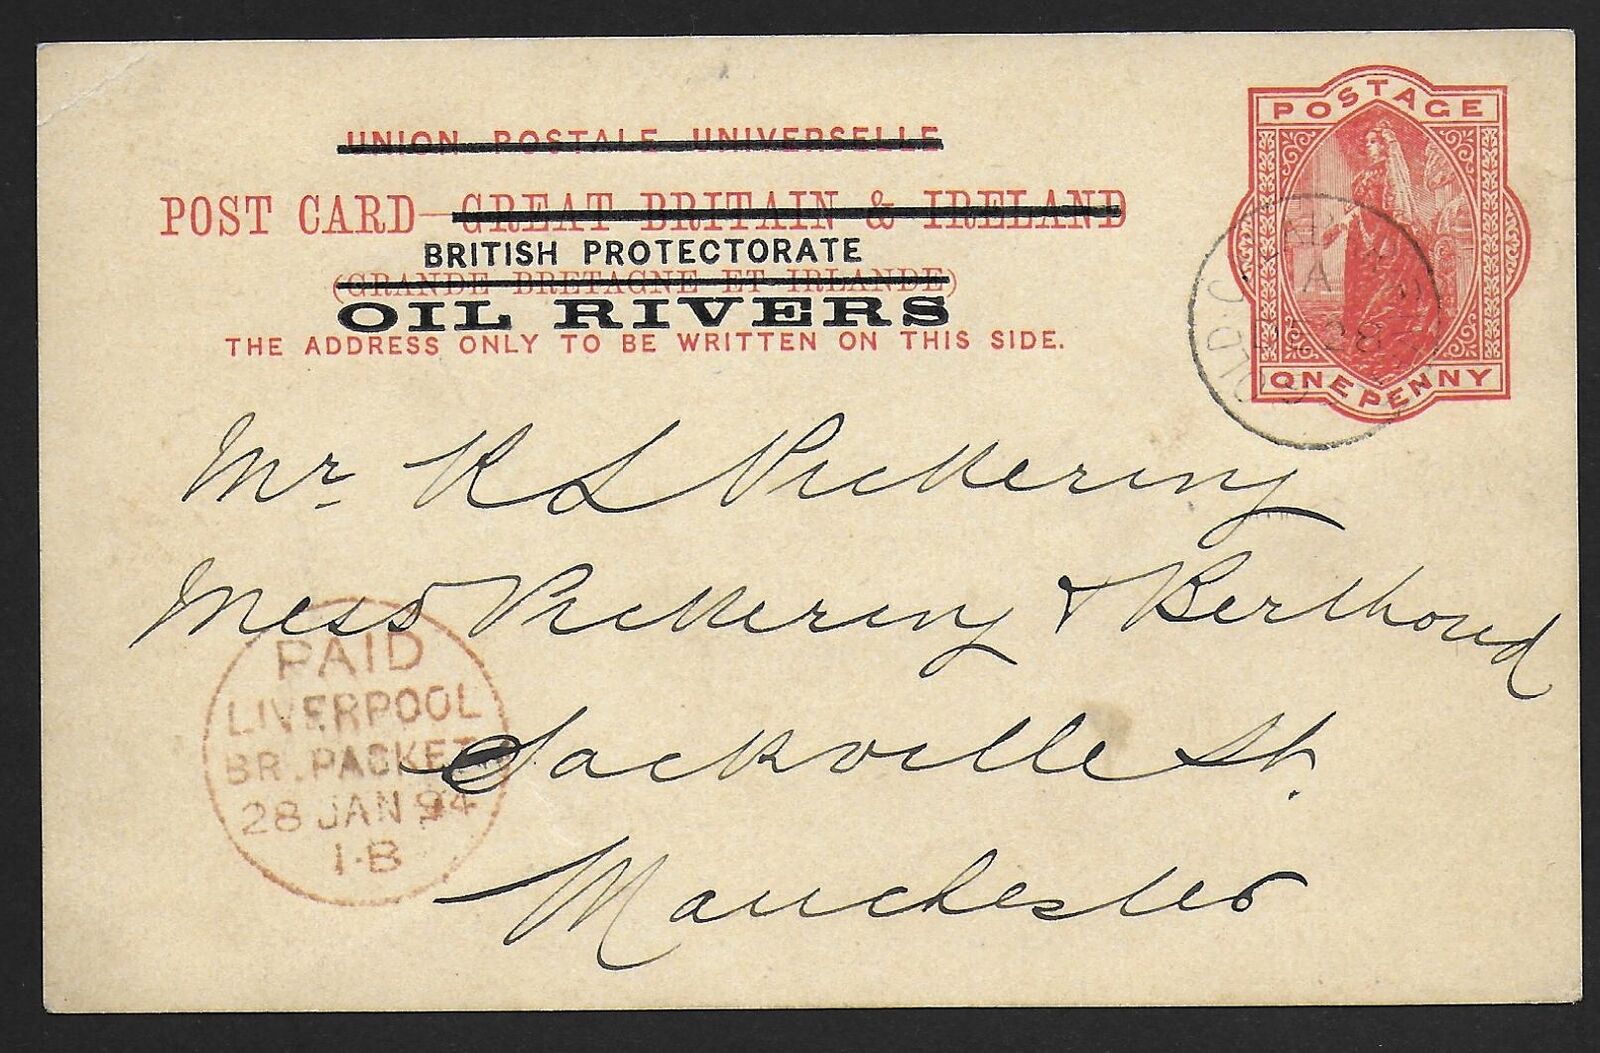 UNION POSTALE UNIVERSELLE
POST CARD—GREAT BRITAIN & IRELAND
BRITISH PROTECTORATE
(GRANDE BRETAGNE ET IRLANDE)
OIL RIVERS
THE ADDRESS ONLY TO BE WRITTEN ON THIS SIDE.
POSTAGE
ONE PENNY
OLD C
A
DE 28
Mr. R L Pickering
Mess Pickering & Berthoud
Sackville St.
Manchester
PAID
LIVERPOOL
BR. PACKET
28 JAN 94
1·B